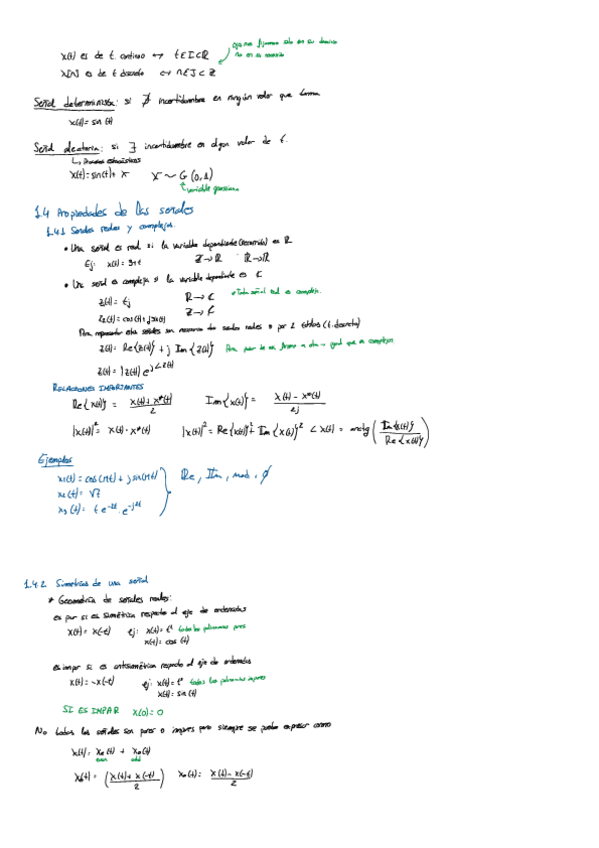 ojo nos fijamos solo en su dominio
no en su recorrido
x(t) es de t. continuo ↔ t ∈ I ⊂ ℝ
x[n] es de t discreto ↔ n ∈ J ⊂ ℤ
Señal determinista: si ∄ incertidumbre en ningún valor que toma
x(t) = sin(t)
Señal aleatoria: si ∃ incertidumbre en algun valor de t.
↳ Procesos estocásticos
x(t) = sin(t) + X X ~ G(0,1)
variable gaussiana
1.4 Propiedades de las señales
1.4.1 Señales reales y complejas.
• Una señal es real si la variable dependiente (recorrido) es ℝ
Ej: x(t) = 3πt ℤ → ℝ ℝ → ℝ
• Una señal es compleja si la variable dependiente es ℂ
z(t) = tj ℝ → ℂ * Toda señal real es compleja.
z₂(t) = cos(t) + j sin(t) ℤ → ℂ
Para representar estas señales son necesarias dos señales reales o por 2 (t. discreto)
z(t) = Re{z(t)} + j Im{z(t)} Para pasar de una forma a otra → igual que en complejos
z(t) = |z(t)| e^{j∠z(t)}
RELACIONES IMPORTANTES
Re{x(t)} = (x(t) + x*(t))/2 Im{x(t)} = (x(t) - x*(t))/2j
|x(t)|² = x(t) · x*(t) |x(t)|² = Re{x(t)}² + Im{x(t)}² ∠x(t) = arctg(Im{x(t)}/Re{x(t)})
Ejemplos
x₁(t) = cos(πt) + j sin(πt)
x₂(t) = √7 Re, Im, mod, ∅
x₃(t) = t e^{-2t} · e^{-j2t}
1.4.2 Simetrías de una señal
* Geometría de señales reales:
es par si es simétrica respecto al eje de ordenadas
x(t) = x(-t) ej: x(t) = t² todos los polinomios pares
x(t) = cos(t)
es impar si es antisimétrica respecto al eje de ordenadas
x(t) = -x(-t) ej: x(t) = t³ todos los polinomios impares
x(t) = sin(t)
SI ES IMPAR x(0) = 0
No todas las señales son pares o impares pero siempre se pueden expresar como
x(t) = xe(t) + xo(t)
even odd
xe(t) = ((x(t) + x(-t))/2) xo(t) = (x(t) - x(-t))/2